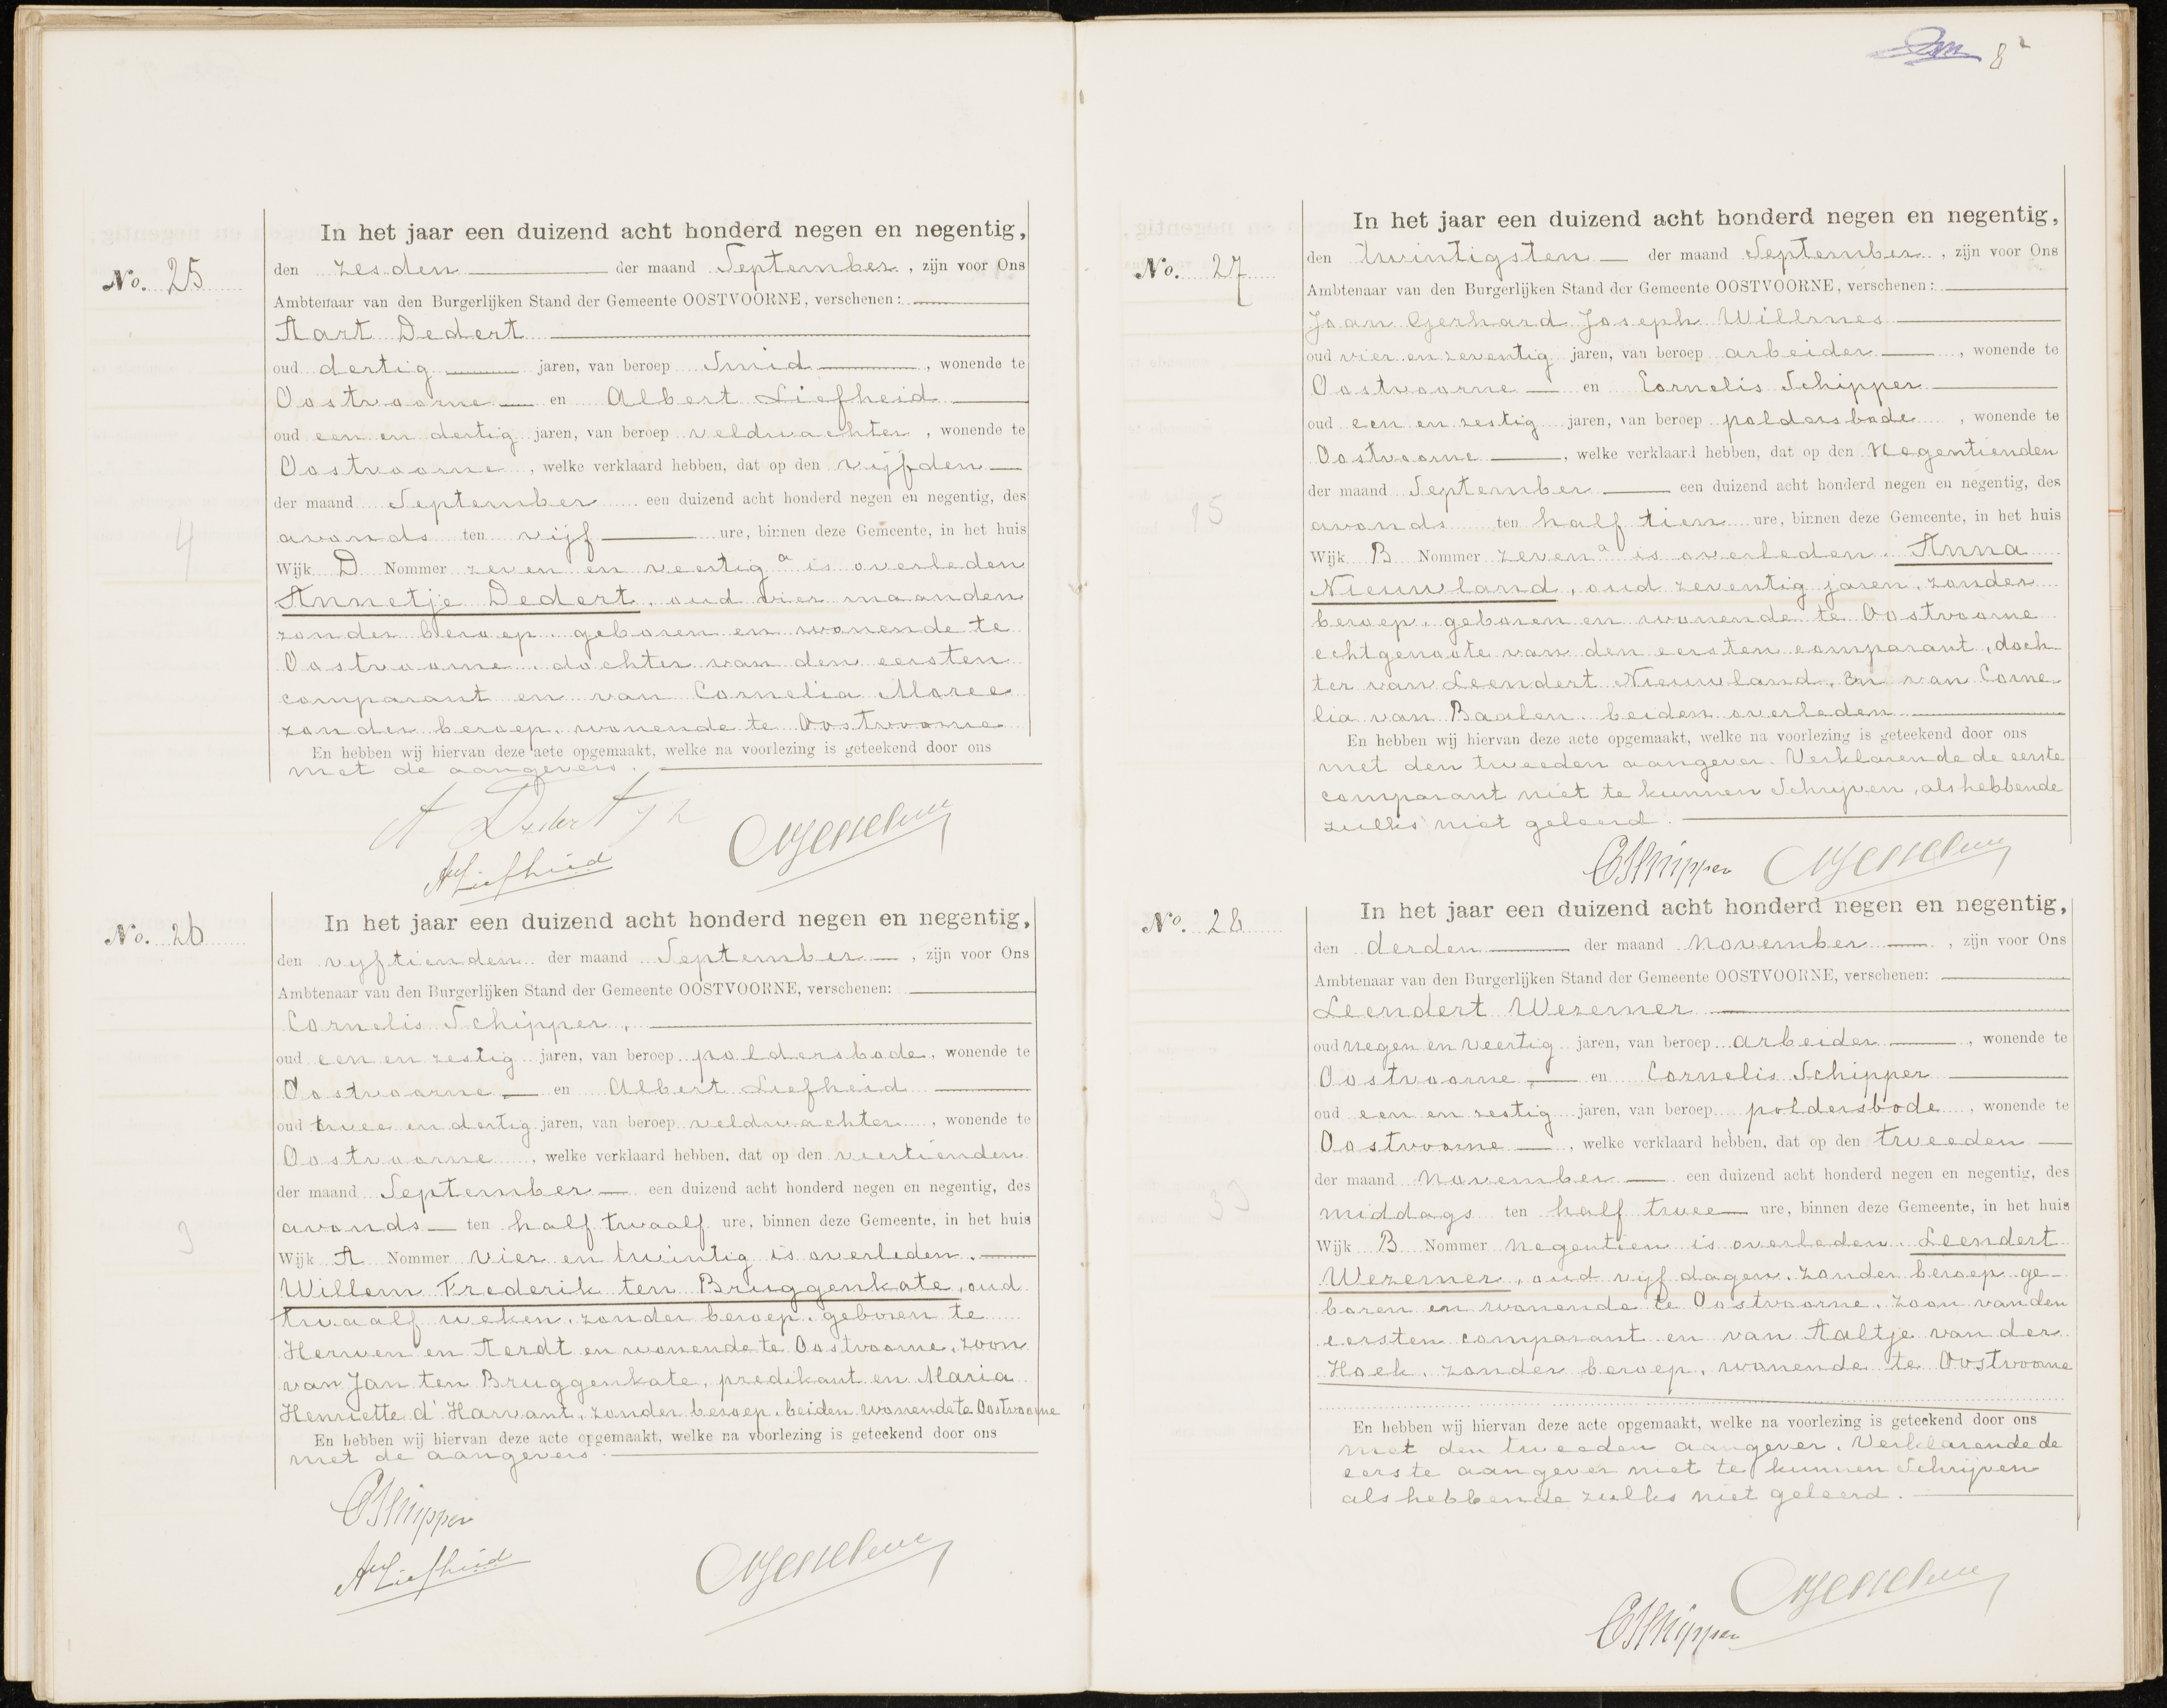 No. 25
In het jaar een duizend acht honderd negen en negentig,
den zesden der maand September, zijn voor Ons
Ambtenaar van den Burgerlijken Stand der Gemeente OOSTVOORNE, verschenen:
Aart Dedert
oud dertig jaren, van beroep Smid, wonende te
Oostvoorne en Albert Liefheid
oud een en dertig jaren, van beroep veldwachter, wonende te
Oostvoorne, welke verklaard hebben, dat op den vijfden
der maand September een duizend acht honderd negen en negentig, des
avonds ten vijf ure, binnen deze Gemeente, in het huis
Wijk D Nommer zeven en veertig a is overleden
Annetje Dedert, oud vier maanden
zonder beroep, geboren en wonende te
Oostvoorne, dochter van den eersten
comparant en van Cornelia Moree
zonder beroep, wonende te Oostvoorne
En hebben wij hiervan deze acte opgemaakt, welke na voorlezing is geteekend door ons
met de aangevers.
4
A Dedert
A Liefheid
No. 26
In het jaar een duizend acht honderd negen en negentig,
den vyftienden der maand September, zijn voor Ons
Ambtenaar van den Burgerlijken Stand der Gemeente OOSTVOORNE, verschenen:
Cornelis Schipper,
oud een en zestig jaren, van beroep poldersbode, wonende te
Oostvoorne en Albert Liefheid
oud twee en dertig jaren, van beroep veldwachter, wonende te
Oostvoorne, welke verklaard hebben, dat op den veertienden
der maand September een duizend acht honderd negen en negentig, des
avonds ten half twaalf ure, binnen deze Gemeente, in het huis
Wijk A Nommer vier en twintig is overleden.
Willem Frederik ten Bruggenkate, oud
twaalf weken, zonder beroep, geboren te
Herwen en Aerdt en wonende te Oostvoorne, zoon
van Jan ten Bruggenkate, predikant en Maria
Henriette d' Harvant, zonder beroep, beiden wonende te Oostvoorne
En hebben wij hiervan deze acte opgemaakt, welke na voorlezing is geteekend door ons
met de aangevers.
C Schipper
A Liefheid
8
No. 27
In het jaar een duizend acht honderd negen en negentig,
den twintigsten der maand September, zijn voor Ons
Ambtenaar van den Burgerlijken Stand der Gemeente OOSTVOORNE, verschenen:
Joan Gerhard Joseph Willmes
oud vier en zeventig jaren, van beroep arbeider, wonende te
Oostvoorne en Cornelis Schipper
oud een en zestig jaren, van beroep poldersbode, wonende te
Oostvoorne, welke verklaard hebben, dat op den Negentienden
der maand September een duizend acht honderd negen en negentig, des
avonds ten half tien ure, binnen deze Gemeente, in het huis
Wijk B Nommer zeven a is overleden. Anna
Nieuwland, oud zeventig jaren, zonder
beroep, geboren en wonende te Oostvoorne
echtgenoote van den eersten comparant, doch
ter van Leendert Nieuwland, En van Corne-
lia van Baalen, beiden overleden
En hebben wij hiervan deze acte opgemaakt, welke na voorlezing is geteekend door ons
met den tweeden aangever. Verklarende de eerste
comparant niet te kunnen Schryven, als hebbende
zulks niet geleerd.
15
C Schipper
No. 28
In het jaar een duizend acht honderd negen en negentig,
den derden der maand November, zijn voor Ons
Ambtenaar van den Burgerlijken Stand der Gemeente OOSTVOORNE, verschenen:
Leendert Wezemer
oud negen en veertig jaren, van beroep arbeider, wonende te
Oostvoorne, en Cornelis Schipper
oud een en zestig jaren, van beroep poldersbode, wonende te
Oostvoorne, welke verklaard hebben, dat op den tweeden
der maand November een duizend acht honderd negen en negentig, des
middags ten half twee ure, binnen deze Gemeente, in het huis
Wijk B Nommer Negentien is overleden. Leendert
Wezemer, oud vijf dagen, zonder beroep ge-
boren en wonende te Oostvoorne, zoon van den
eersten comparant en van Aaltje van der
Hoek, zonder beroep, wonende te Oostvoorne
En hebben wij hiervan deze acte opgemaakt, welke na voorlezing is geteekend door ons
met den tweeden aangever. Verklarende de
eerste aangever niet te kunnen Schrijven
als hebbende zulks niet geleerd.
C Schipper